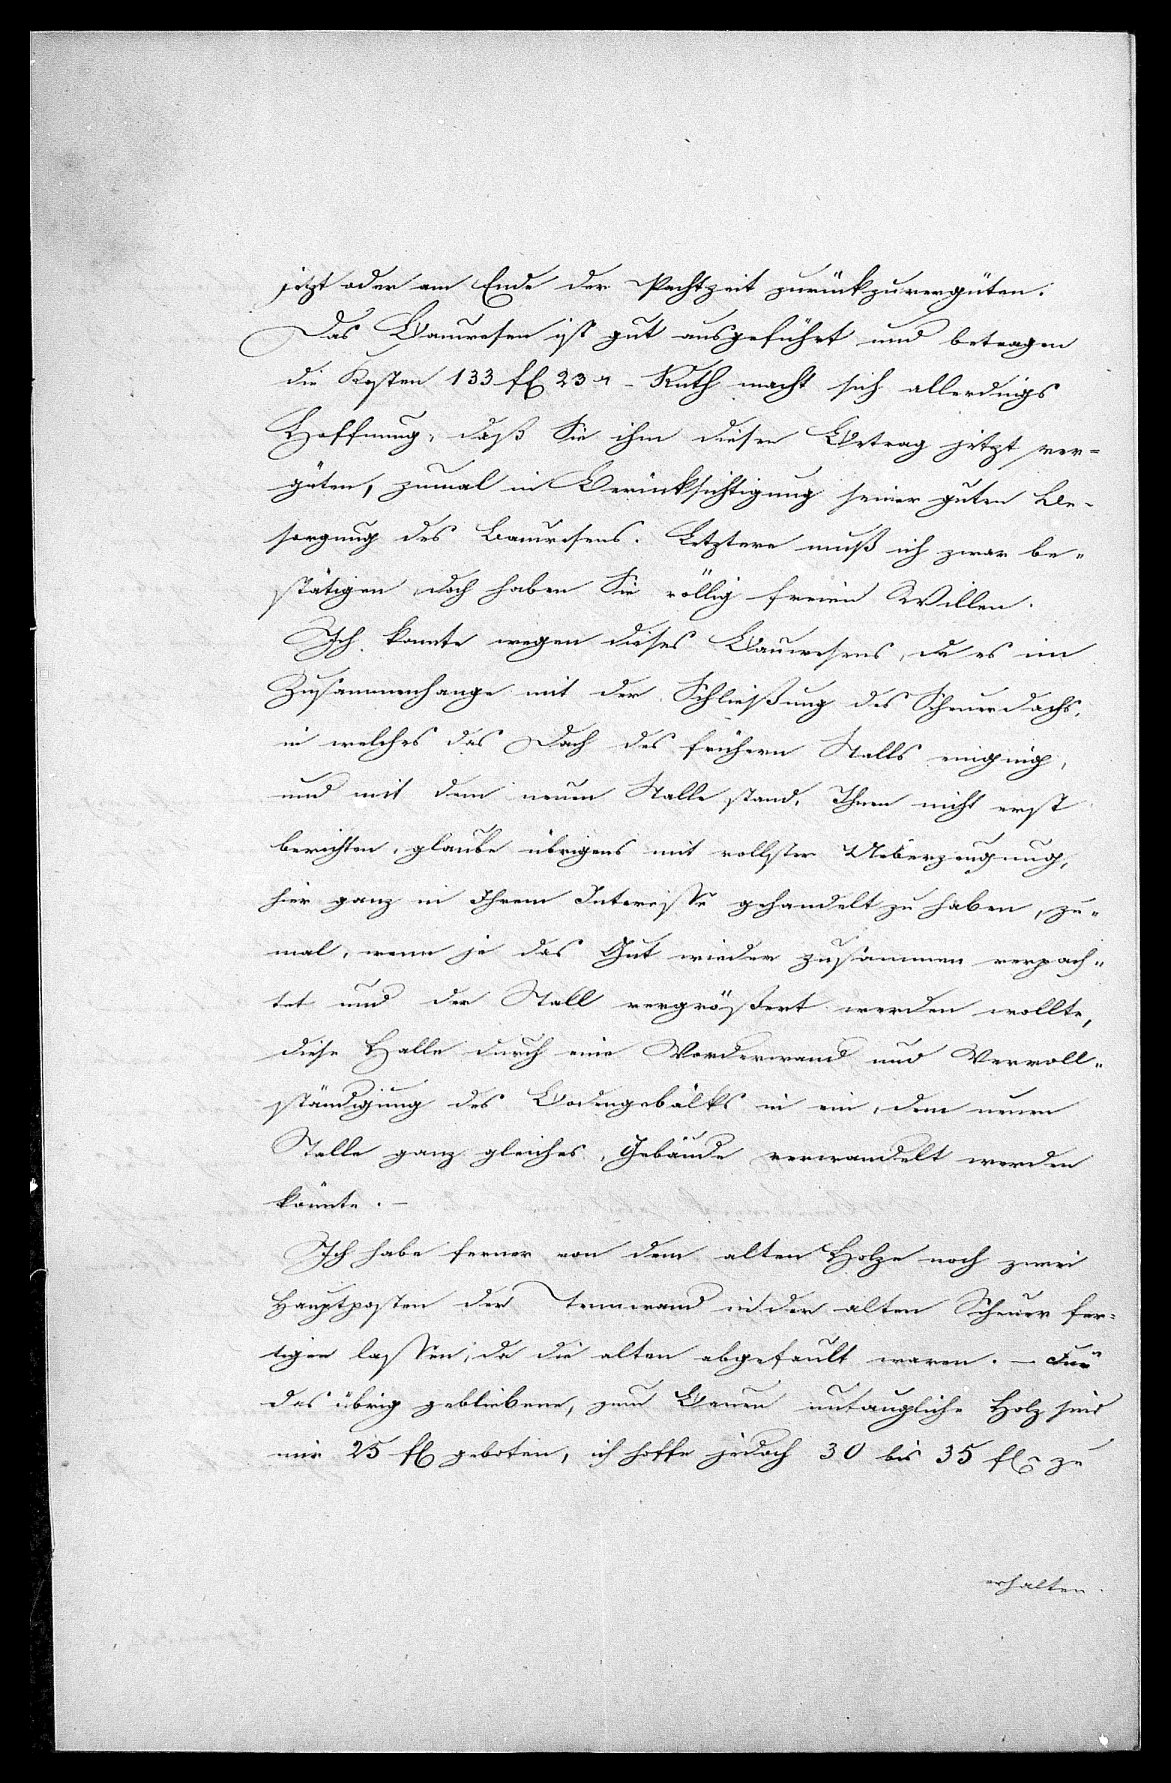 jetzt oder am Ende der Pachtzeit zurückzuvergüten.
Das Bauwesen ist gut ausgeführt und betragen
die Kosten 133 fl 23 x - Ruth macht sich allerdings
Hoffnung, daß Sie ihm diesen Betrag jetzt ver-
güten, zumal in Berücksichtigung seiner guten Be-
sorgung des Bauwesens. Letztere muß ich zwar be-
stätigen doch haben Sie völlig freien Willen.
Ich konnte wegen dieses Bauwesens, da es im
Zusammenhange mit der Schließung des Scheuerdachs,
in welches das Dach des frühern Stalls einging,
und mit dem neuen Stalle stand, Ihnen nicht erst
berichten, glaube übrigens mit vollster Ueberzeugung,
hier ganz in Ihrem Interesse gehandelt zu haben, zu-
mal, wenn je das Gut wieder zusammen verpach-
tet und der Stall vergrößert werden wollte,
diese Halle durch eine Vorderwand und Vervoll-
ständigung des Bodengebälks in ein, dem neuen
Stalle ganz gleiches, Gebäude verwandelt werden
könnte. -
Ich habe ferner von dem alten Holze noch zwei
Hauptposten der Tennwand in der alten Scheuer fer-
tigen lassen, da die alten abgefault waren. - Für
das übrig gebliebene, zum Bauen untaugliche Holz sind
mir 25 fl geboten, ich hoffe jedoch 30 bis 35 fl zu
erhalten.